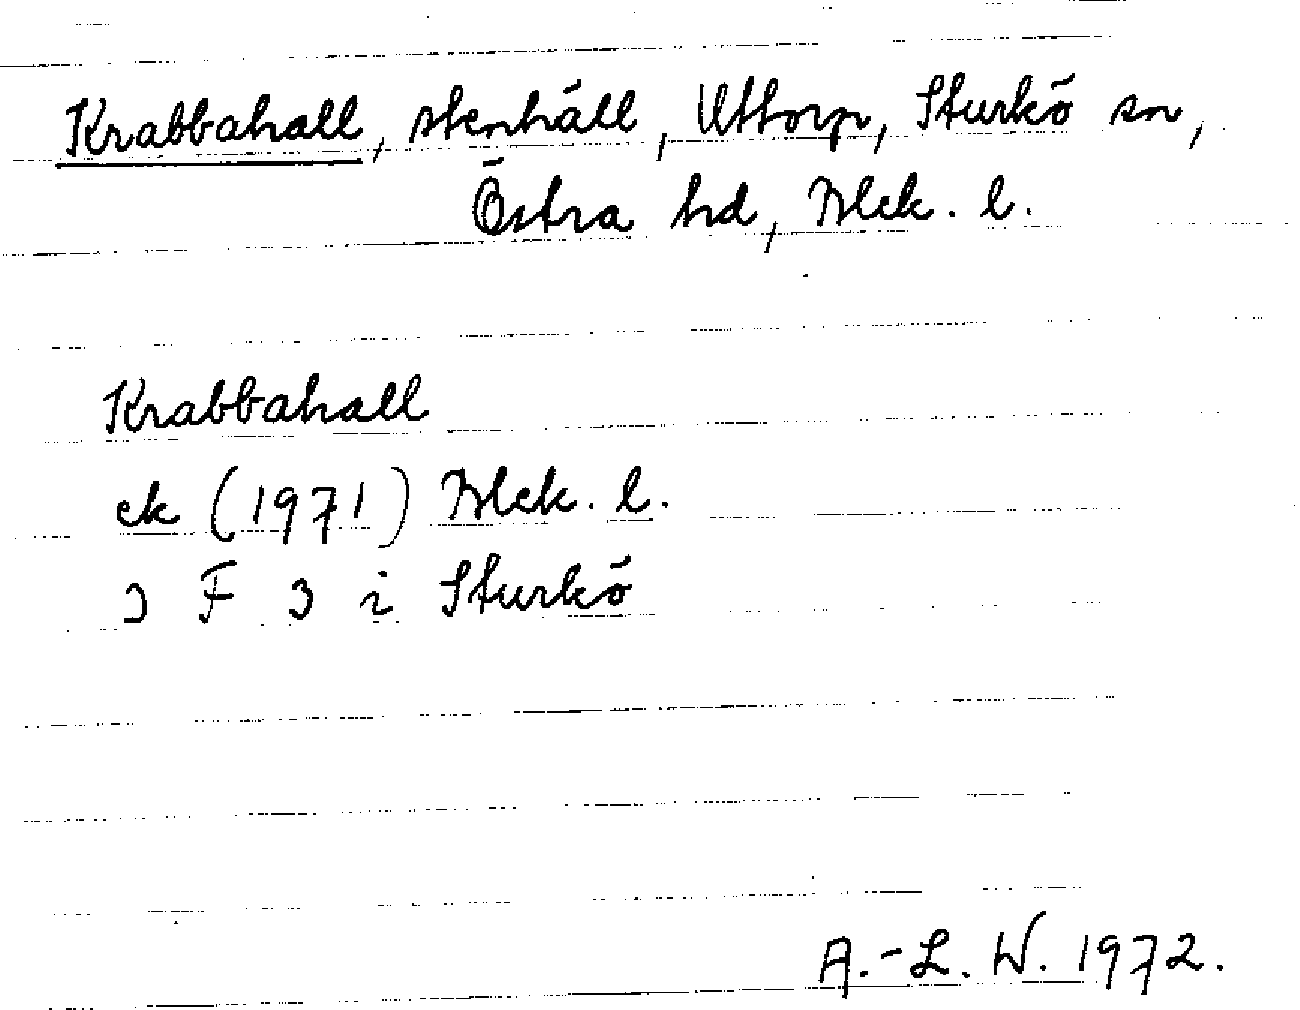 Krabbahall, stenhäll, Uttorp, Sturkö sn,
Östra hd, Blek. l.
Krabbahall
ek (1971) Blek. l.
3 F 3 i Sturkö
A.-L. W. 1972.